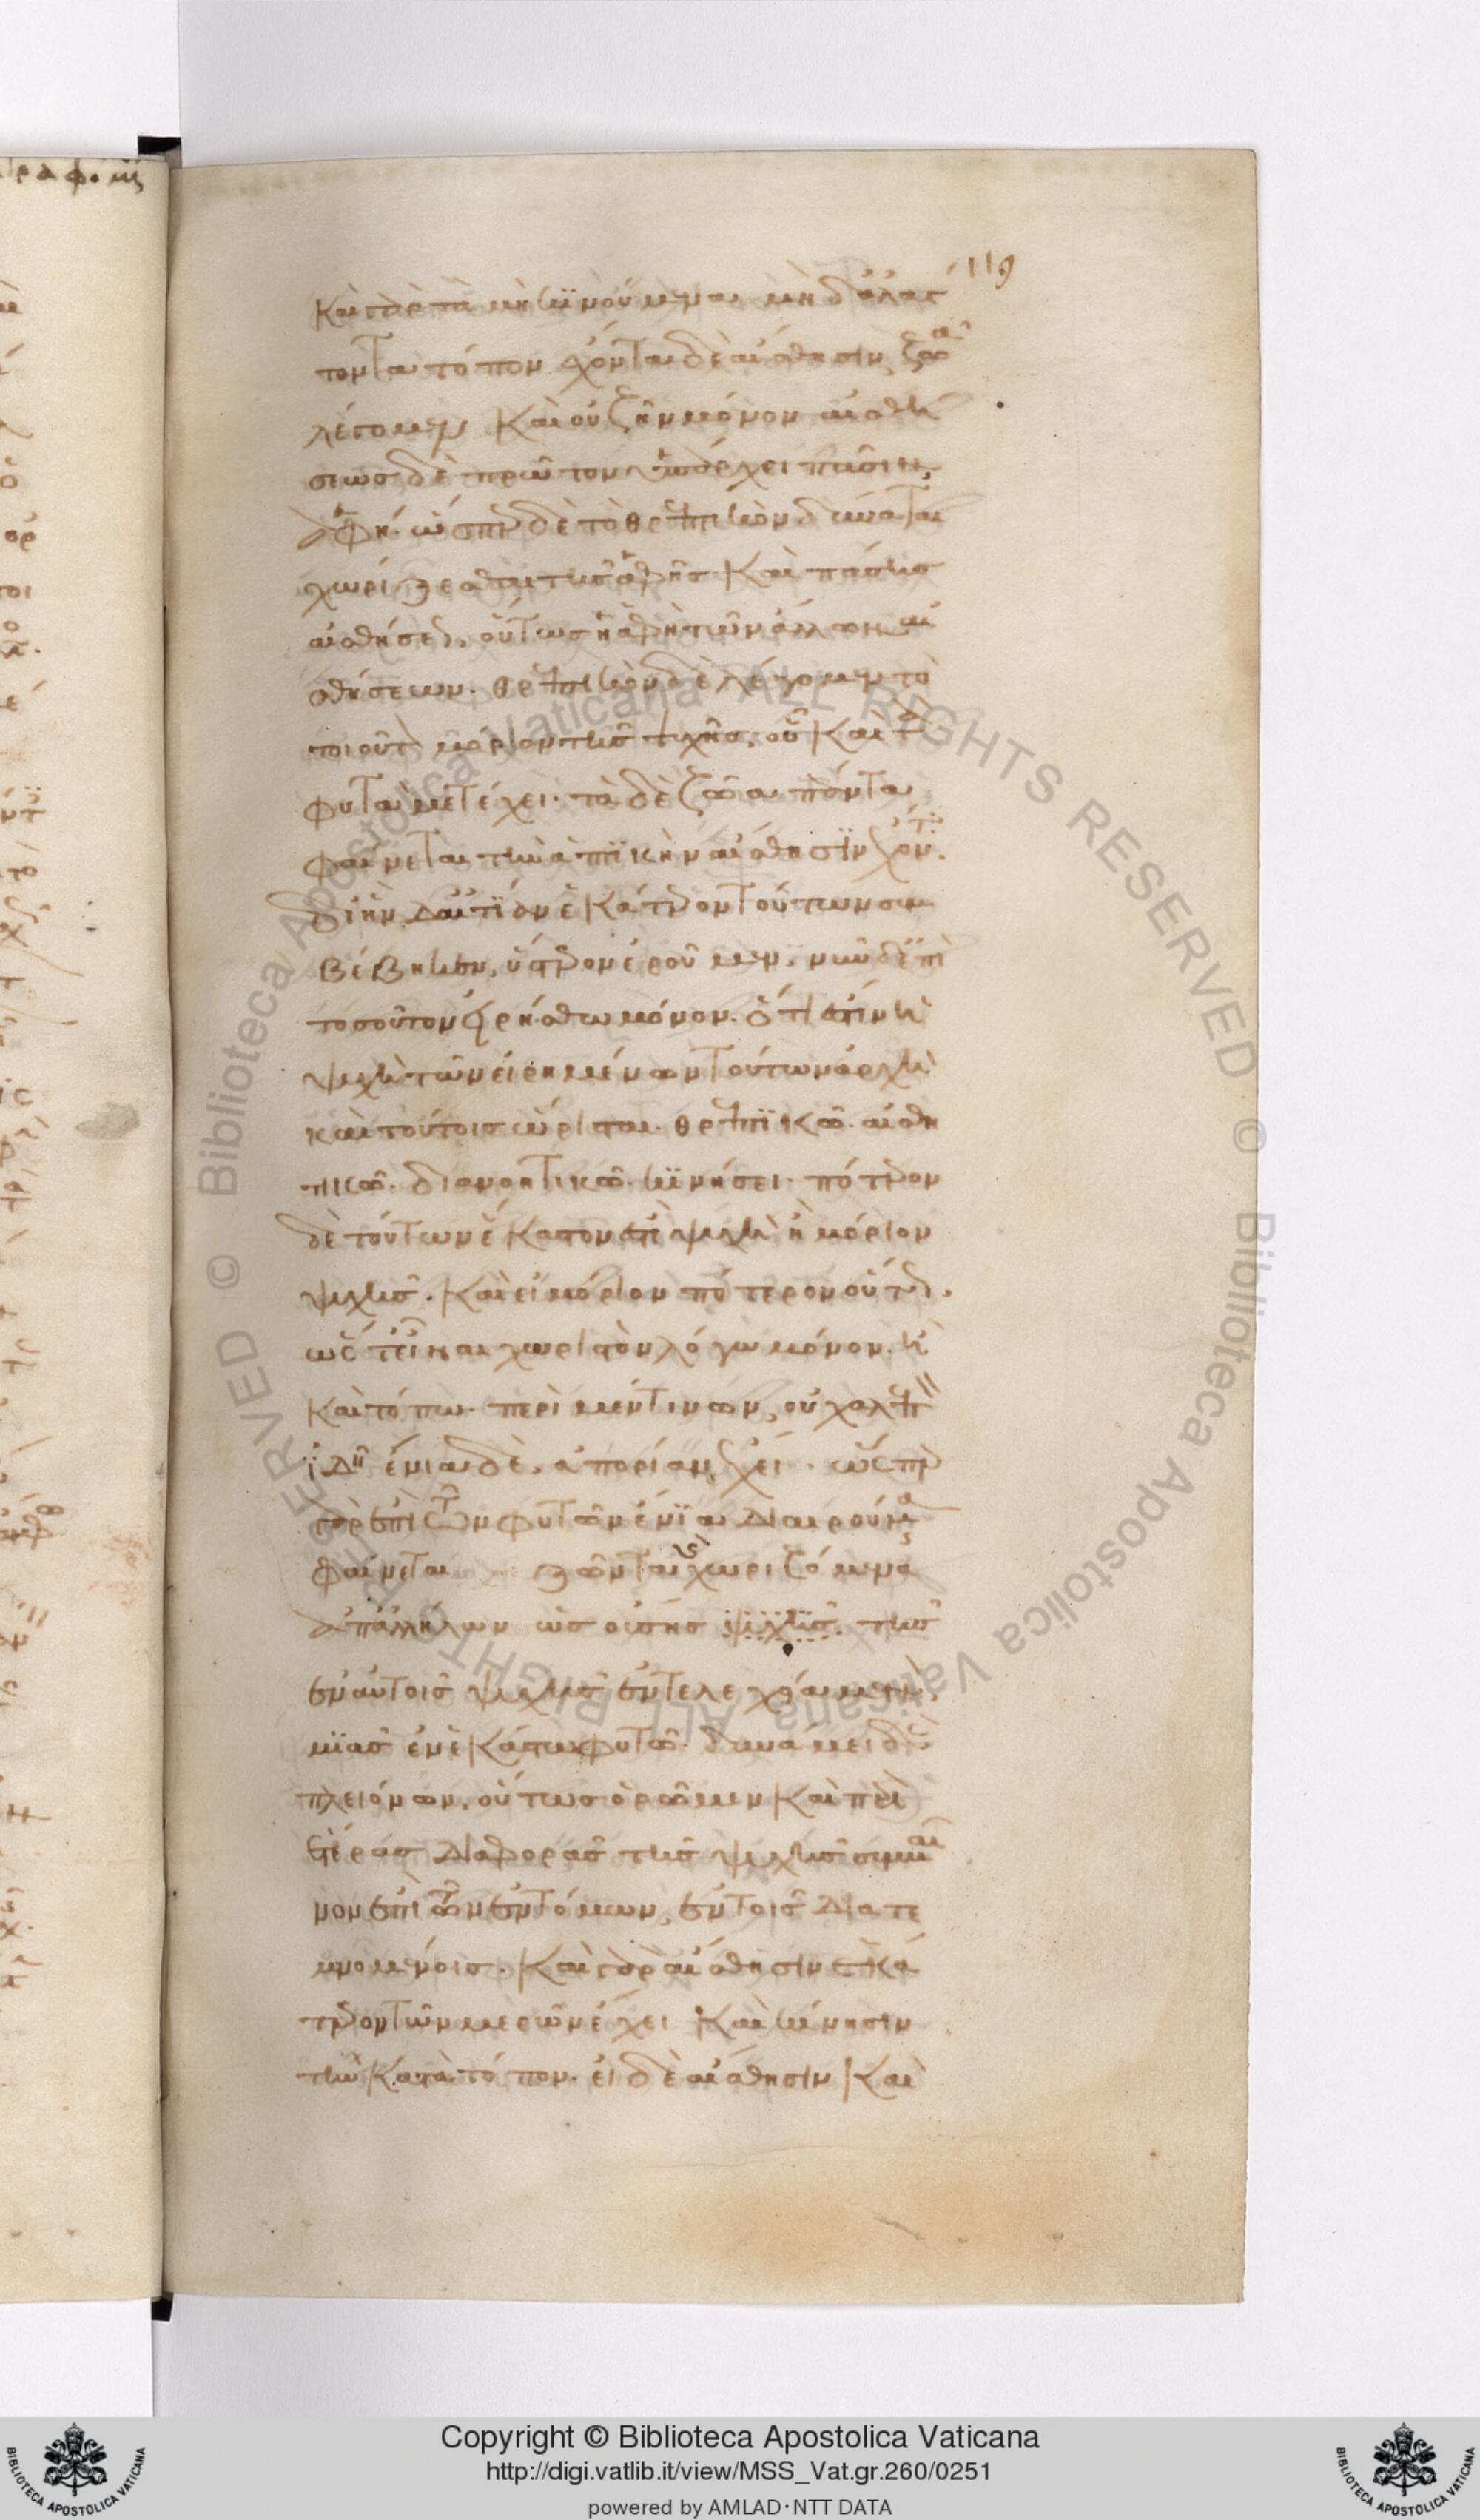 119
καὶ γὰρ τὰ μὴ κινούμενα μηδ' ἀλλάτ
τοντα τόπον ἔχοντα δὲ αἴσθησιν, ζῶα
λέγομεν καὶ οὐ ζῆν μόνον αἰσθή
σεως δὲ πρῶτον ὑπάρχει πᾶσιν,
ἁφή. ὥσπερ δὲ τὸ θρεπτικὸν δύναται
χωρίζεσθαι τῆς ἁφῆς καὶ πάσης
αἰσθήσεως. οὕτως ἡ ἁφὴ τῶν ἄλλων αἰ
σθήσεων. θρεπτικὸν δὲ λέγομεν τὸ
τοιοῦτον μόριον τῆς ψυχῆς, οὗ καὶ τὰ
φυτὰ μετέχει. τὰ δὲ ζῶα πάντα
φαίνεται τὴν ἁπτικὴν αἴσθησιν ἔχοντα.
δι' ἣν δ' αἰτίαν ἑκάτερον τούτων συμ
βέβηκεν, ὕστερον ἐροῦμεν. νῦν δ' ἐπὶ
τοσοῦτον εἰρήσθω μόνον. ὅτι ἐστὶν ἡ
ψυχὴ τῶν εἰρημένων τούτων ἀρχὴ
καὶ τούτοις ὥρισται. θρεπτικῶ. αἰσθη
τικῶ. διανοητικῶ. κινήσει. πότερον
δὲ τούτων ἕκαστον ἐστὶ ψυχὴ ἢ μόριον
ψυχῆς. καὶ εἰ μόριον πότερον οὕτως.
ὥστ' εἶναι χωριστὸν λόγω μόνον. ἢ
καὶ τόπω. περὶ μὲν τινῶν, οὐ χαλεπὸν
ἰδεῖν ἔνια δὲ, ἀπορίαν ἔχει. ὥσπερ
γὰρ ἐπὶ τῶν φυτῶν ἔνια διαιρούμενα
φαίνεται ζῶντα καὶ χωριζόμενα
ἀπ' ἀλλήλων ὡς οὔσης ψυχῆς. τῆς
ἐν αὐτοῖς ψυχῆς ἐντελεχεία μὲν,
μιᾶς ἐν ἑκάστω φυτῶ. δυνάμει δὲ
πλειόνων. οὕτως ὁρῶμεν καὶ περὶ
ἑτέρας διαφορὰς τῆς ψυχῆς συμβαῖ
νον ἐπὶ τῶν ἐντόμων, ἐν τοῖς διατε
μνομένοις. καὶ γὰρ αἴσθησιν ἑκά
τερον τῶν μερῶν ἔχει καὶ κίνησιν
τὴν κατὰ τόπον. εἰ δὲ αἴσθησιν καὶ
Copyright © Biblioteca Apostolica Vaticana
http://digi.vatlib.it/view/MSS_Vat.gr.260/0251
powered by AMLAD·NTT DATA